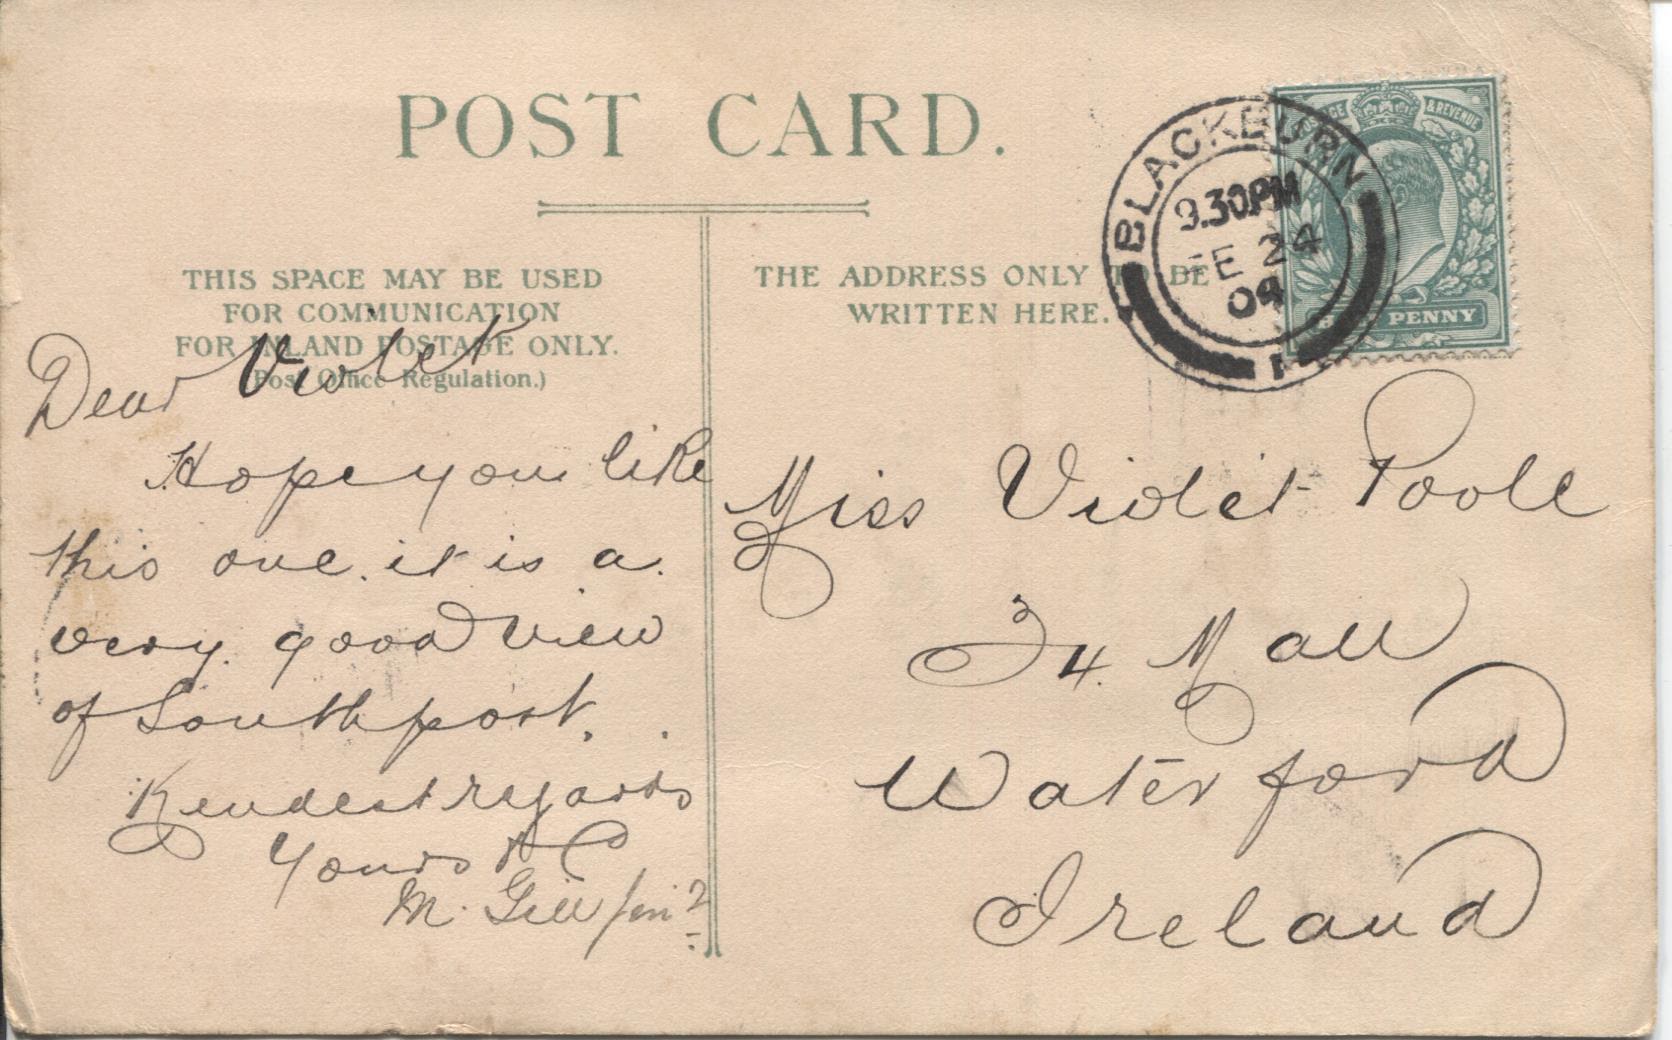 POST CARD.
THIS SPACE MAY BE USED
FOR COMMUNICATION
FOR INLAND POSTAGE ONLY.
(Post Office Regulation.)
THE ADDRESS ONLY TO BE
WRITTEN HERE.
BLACKBURN
9.30PM
FE 24
04
& REVENUE
PENNY
Dear Violet
Hope you like
this one. it is a.
very. good view
of Southport.
Kindest regards
Yours
M. Gill
Miss Violet Poole
34. Mall
Waterford
Ireland